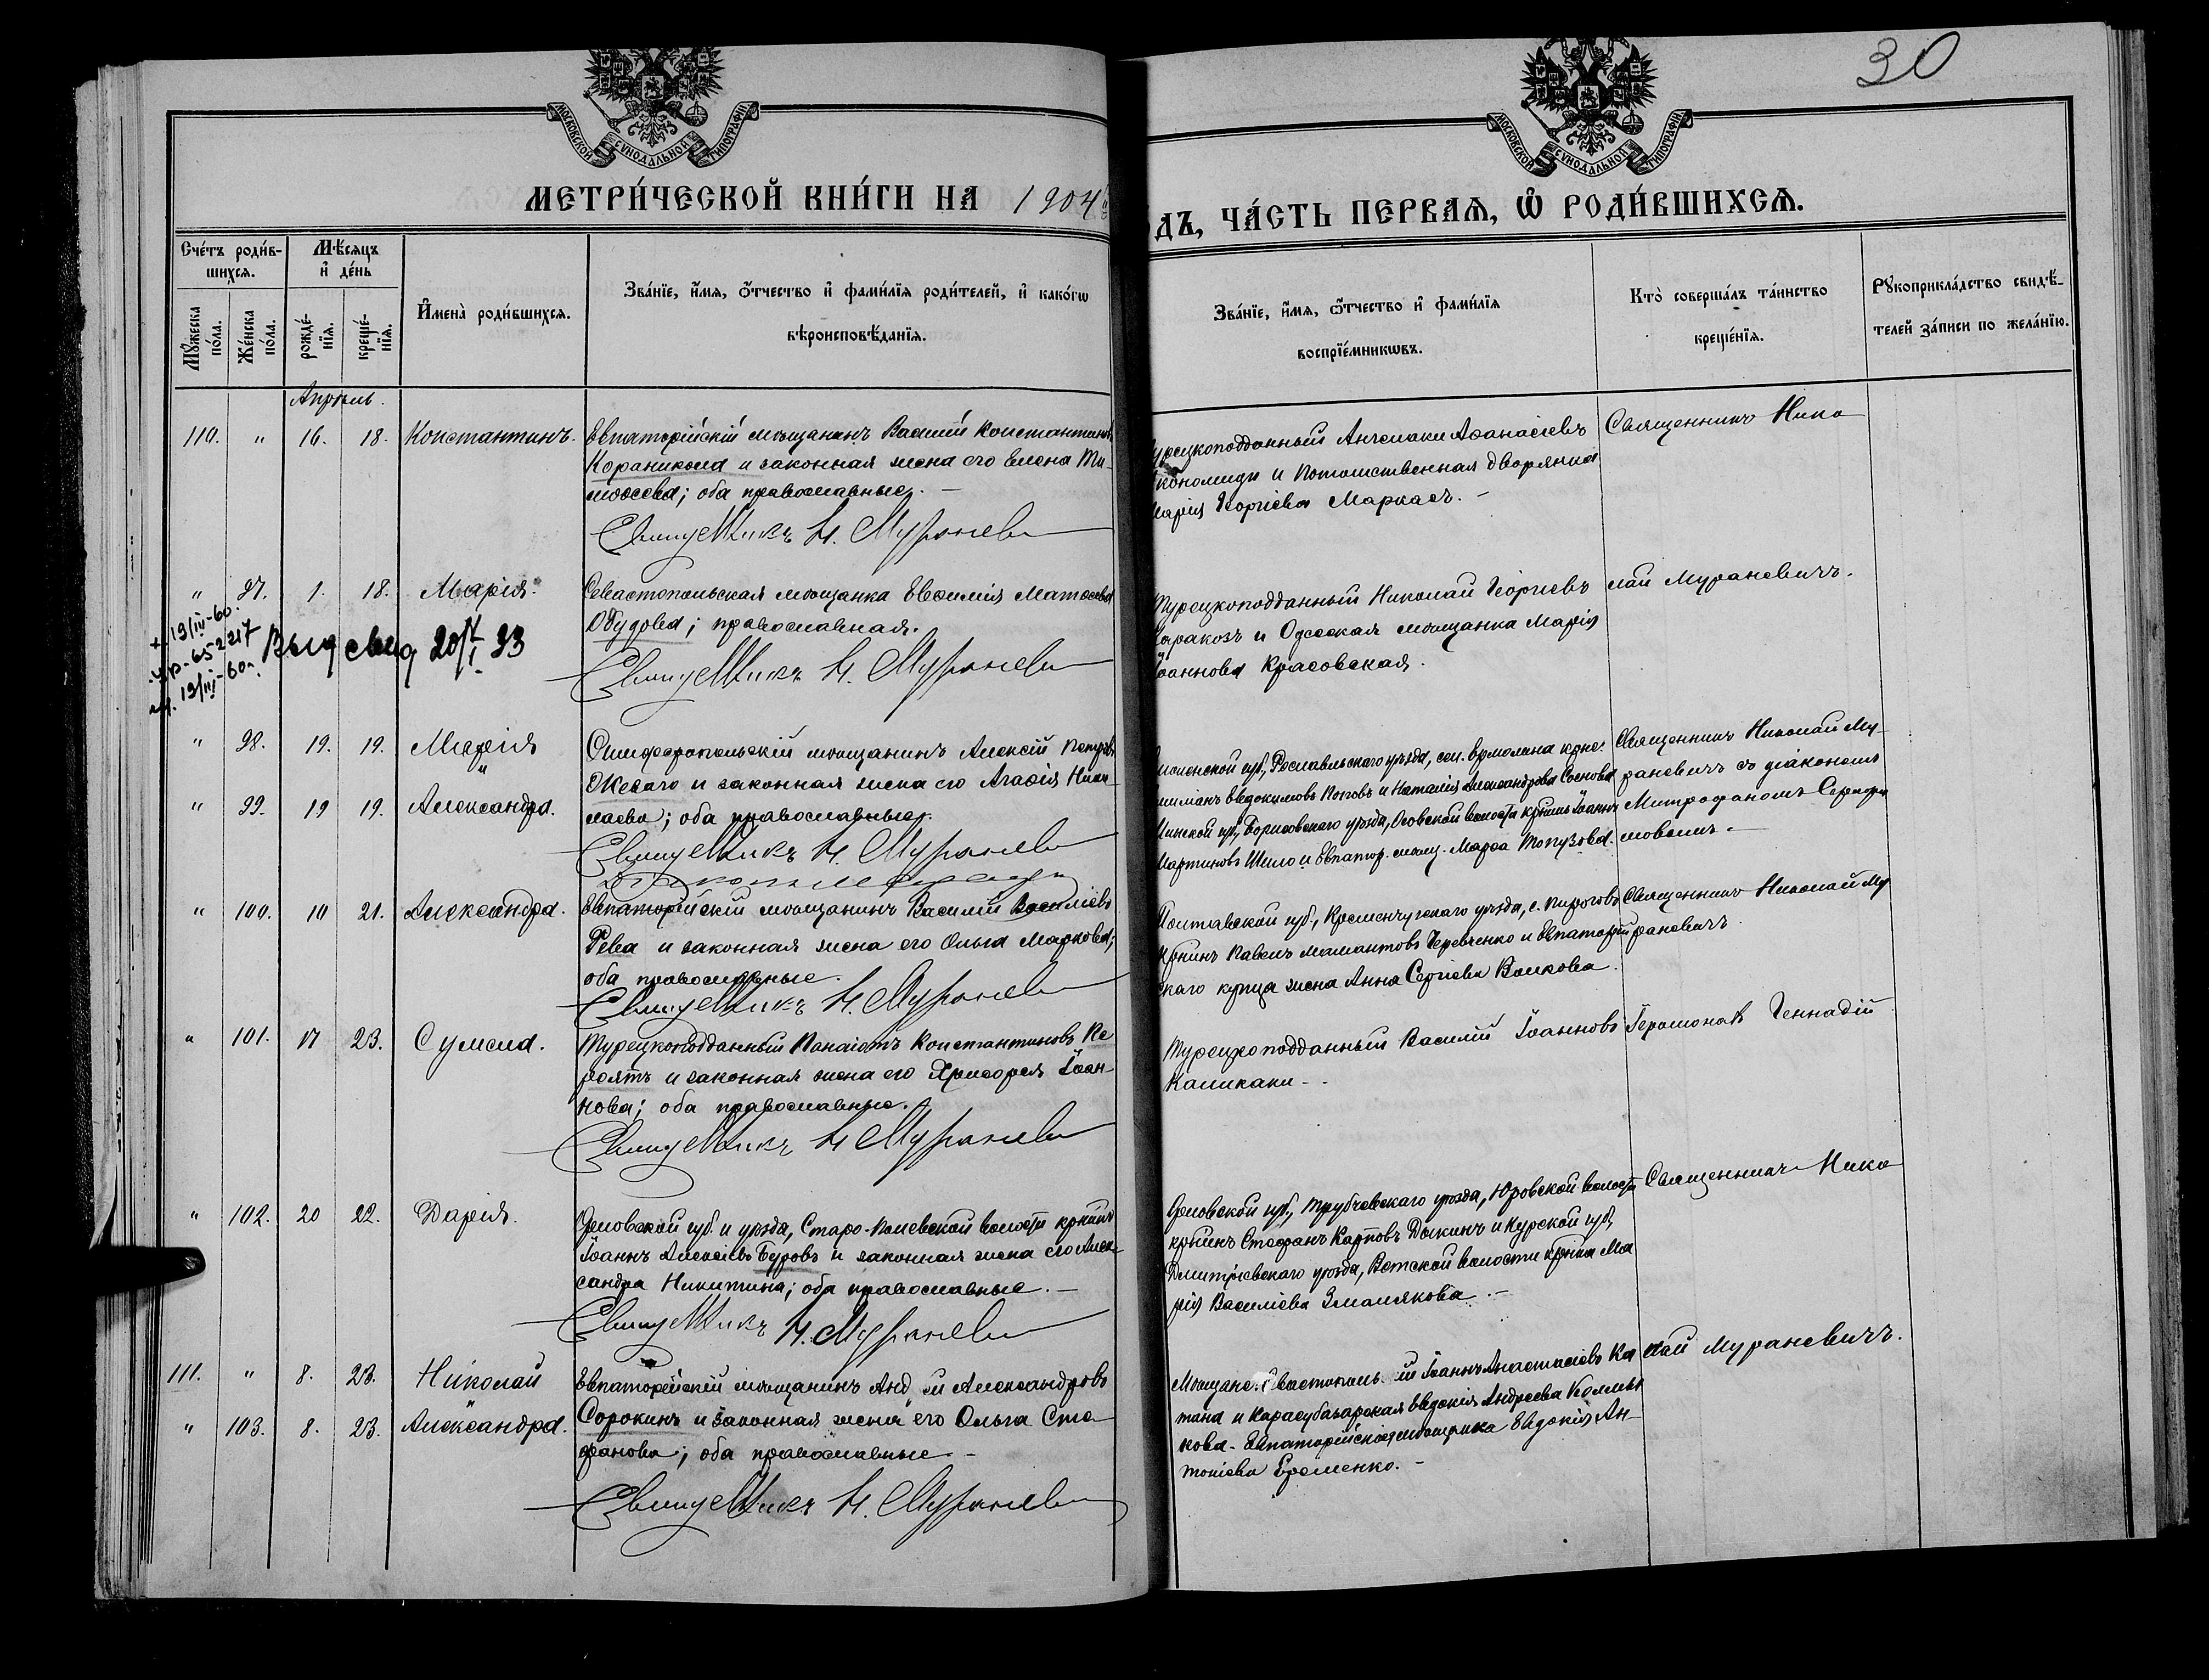 30
МОСКОВСКОЙ СУНОДАЛЬНОЙ ТИПОГРАФІИ
МОСКОВСКОЙ СУНОДАЛЬНОЙ ТИПОГРАФІИ
МЕТРИ́ЧЕСКОЙ КНИ́ГИ НА 1904
ДЪ, ЧА́СТЬ ПЕРВАѦ, Ѡ҆ РОДИ́ВШИХСѦ.
Сче́тъ роди́в-
шихсѧ.
Мꙋжеска по́ла.
Же́нска по́ла.
Мѣ́сѧцъ
и҆ де́нь
рожде́-
нїѧ.
креще́-
нїѧ.
И҆мена̀ роди́вшихсѧ.
Зва́нїе, и҆́мѧ, ѻ҆́тчество и҆ фами́лїѧ роди́телей, и҆ како́гѡ
вѣроисповѣ́данїѧ.
Зва́нїе, и҆́мѧ, ѻ҆́тчество и҆ фами́лїѧ
воспрїе́мникѡвъ.
Кто̀ соверша́лъ та́инство
креще́нїѧ.
Рꙋкоприкла́дство свидѣ́-
телей за́писи по жела́нїю.
Апрѣль.
110. " 16. 18. Константинъ.
Евпаторійскій мѣщанинъ Василій Константиновъ
Кораникола и законная жена его Елена Ти-
моѳеева; оба православные. —
Священникъ Н. Муранев
Турецкоподданный Ангелаки Аѳанасіевъ
Икономиди и Потомственная дворянка
Марія Георгіева Маркасъ. —
Священникъ Нико
" 97. 1. 18. Марія.
Севастопольская мѣщанка Евѳимія Матѳеева
Обудова; православная.
Священникъ Н. Муранев
Турецкоподданный Николай Георгіевъ
Каракозъ и Одесская мѣщанка Марія
Іоаннова Красовская.
лай Мураневичъ.
19/III-60.
652217
19/III-60
98. 19. 19. Марія
и
" 99. 19 19. Александра.
Симферопольскій мѣщанинъ Алексій Петровъ
Ожезаго и законная жена его Агаѳія Нико-
лаева; оба православные.
Священникъ Н. Муранев
губ., Рославльскаго уѣзда, сел. Ермолина крес.
Евдокимовъ Поповъ и Наталія Александрова Соснова
Минской губ., Борисовскаго уѣзда, волости Іоаннъ
Мартиновъ Шило и Евпатор. мѣщ. Марѳа Топузова.
Священникъ Николай Му-
раневичъ съ діакономъ
Митрофаномъ Серафи
мовымъ —
" 100. 10 21. Александра.
Евпаторійскій мѣщанинъ Василій Василіевъ
Рева и законная жена его Ольга Маркова;
оба православные.
Священникъ Н. Муранев
Полтавской губ., Кременчугскаго уѣзда, с. Пироговъ
Павелъ Мамантовъ Черевченко и Евпаторій
скаго купца жена Анна Сергіева Волкова.
Священникъ Николай Му
раневичъ.
" 101. 17 23. Сумела.
Турецкоподданный Панаіотъ Константиновъ Ке
реятъ и законная жена его Хрисофея Іоан-
нова; оба православные.
Священникъ Н. Муранев
Турецкоподданный Василій Іоанновъ
Каликаки -
Іеромонахъ Геннадій
" 102. 20 22. Дарія.
Орловской губ. и уѣзда, Старо-Полевской волости
Іоаннъ Алексіевъ Буровъ и законная жена его Алек-
сандра Никитина; оба православные. —
Священникъ Н. Муранев
Орловской губ., Трубчевскаго уѣзда, Юровской волости
Стефанъ Карповъ Дыкинъ и Курской губ.,
Дмитріевскаго уѣзда, волости Ма
рія Василіева —
Священникъ Нико
лай Мураневичъ.
111. " 8. 23. Николай
и
" 103. 8. 23. Александра.
Евпаторійскій мѣщанинъ Александровъ
Сорокинъ и законная жена его Ольга Сте
фанова; оба православные —
Священникъ Н. Муранев
Мѣщане: Іоаннъ Анастасіевъ Ка
тана и Карасубазарская Евдокія Андреева
кова. Евпаторійская мѣщанка Евдокія Ан-
тоніева Еременко. —